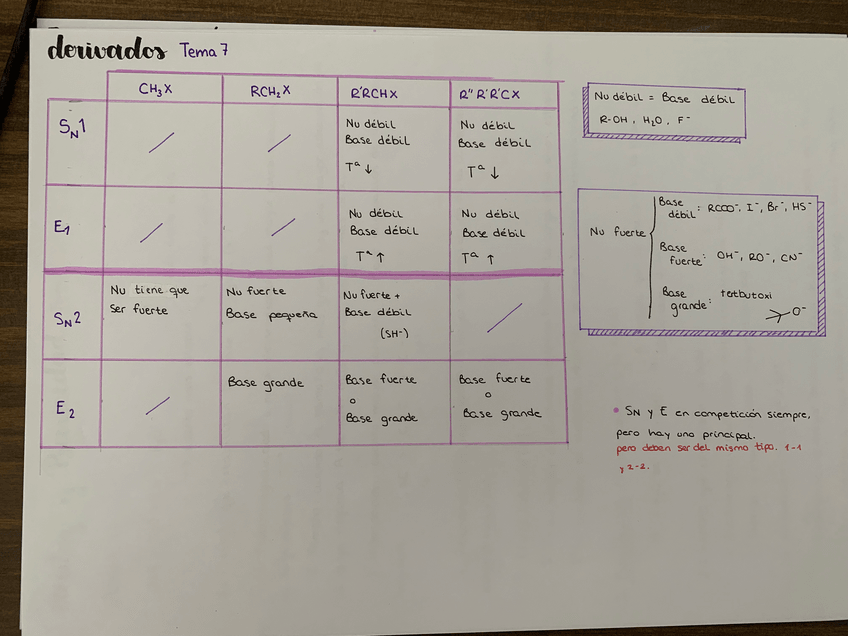 derivados Tema 7
CH₃X RCH₂X R'RCHX R'' R' R'CX
SN1
Nu débil
Base débil
Tª ↓
Nu débil
Base débil
Tª ↓
E1
Nu débil
Base débil
Tª ↑
Nu débil
Base débil
Tª ↑
SN2
Nu tiene que
ser fuerte
Nu fuerte
Base pequeña
Nu fuerte +
Base débil
(SH⁻)
E2
Base grande
Base fuerte
o
Base grande
Base fuerte
o
Base grande
Nu débil = Base débil
R-OH, H₂O, F⁻
Nu fuerte
Base
débil : RCOO⁻, I⁻, Br⁻, HS⁻
Base
fuerte: OH⁻, RO⁻, CN⁻
Base
grande: terbutoxi
O⁻
• SN y E en competición siempre,
pero hay uno principal.
pero deben ser del mismo tipo. 1-1
y 2-2.